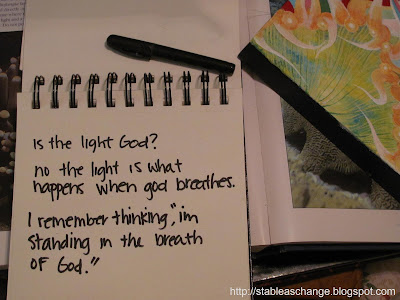 is the light God?
no the light is what
happens when god breathes.
I remember thinking, "i'm
standing in the breath
of God."
http://stableaschange.blogspot.com